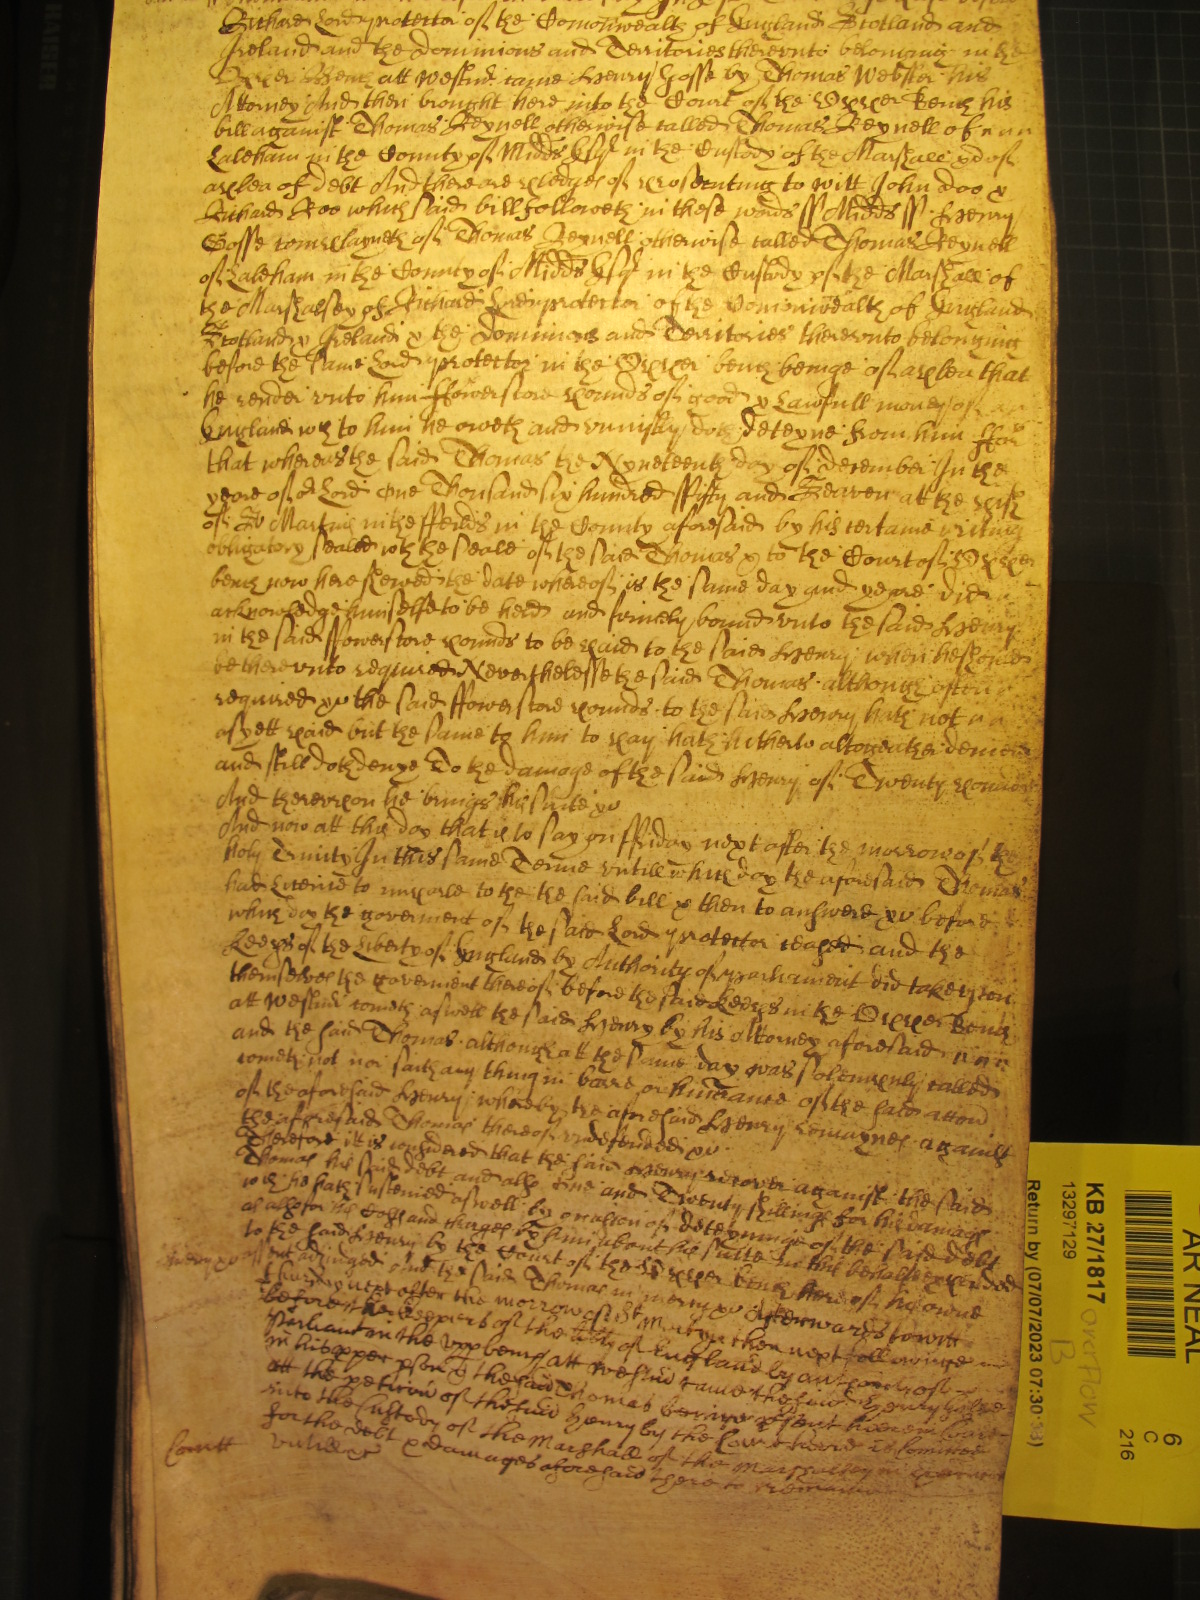 Richard Lord protector of the Comonwealth of England Scotland and
Ireland and the dominions and Territories therevnto belonging in the
Vpper Bench att Westmr came Henry Gosse by Thomas Webster his
Attorney And then brought here into the Court of the Vpper bench his
bill against Thomas Reynell otherwise called Thomas Reynell of
Laleham in the County of Midds Esqr in the Custody of the Marshall &c of
a plea of debt And there are pledges of prosecuting to witt John doo &
Richard Roo which said bill followeth in these words ss Midds ss Henry
Gosse complayneth of Thomas Reynell otherwise called Thomas Reynell
of Laleham in the County of Midds Esqr in the Custody of the Marshall of
the Marshalsey of Richard Lord protector of the Comonwealth of England
Scotland & Ireland & the dominions and Territories therevnto belonging
before the same Lord protector in the Vpper bench beinge of a plea that
he render vnto him ffowerscore pounds of good & Lawfull money of
England wch to him he oweth and vniustly doth deteyne from him ffor
that whereas the said Thomas the Nyneteenth day of december In the
yeare of or Lord One Thousand six hundred ffifty and Seaven att the prish
of St Martins in the ffeilds in the County aforesaid by his certaine writing
obligatory sealed wth the seale of the said Thomas & to the Court of Vpper
bench now here shewed the date whereof is the same day and yeare did
acknowledge himselfe to be held and firmely bound vnto the said Henry
in the said ffowerscore pounds to be paid to the said Henry when he should
be therevnto required Neverthelesse the said Thomas although often
required &c the said ffowerscore pounds to the said Henry hath not
as yett paid but the same to him to pay hath hitherto altogeather denied
and still doth denye To the damage of the said Henry of Twenty pounds
And therevpon he brings his suite &c
And now att this day that is to say on ffriday next after the morrow of the
holy Trinity In this same Terme vntill which day the aforesaid Thomas
had Licence to imparle to the the said bill & then to answere &c before
which day the goverment of the said Lord protector ceased and the
Keeps of the Liberty of England by Authority of parliament did take vpon
themselves the goverment thereof before the said Keeps in the Vpper Bench
att Westmr cometh aswell the said Henry by his Attorney aforesaid
and the said Thomas although att the same day was solempnly called
cometh not nor saith any thing in barre or hinderance of the said accon
of the aforesaid Henry whereby the aforesaid Henry remaynes against
the aforesaid Thomas thereof vndefended &c
Therefore it is considered that the said Henry recover against the said
Thomas his said debt and also One and Twenty shillings for his damags
wch he hath susteined aswell by occasion of deteyninge of the said debt
as also for his Costs and charges by him about his suite in this behalfe expended
to the said Henry by the Court of the Vpper bench here of his owne
mercy &c assent adiudged And the said Thomas in mercy &c Afterwards to witt
next after the morrow of St Martyn then next followinge
before the Keepers of the libty of England by authority of
Parliamt in the vpp bench att Westmr came the said Henry Gosse
in his pper pson & the said Thomas being psent here in Court
att the peticion of the said Henry by the Court here is comitted
into the Custody of the Marshall of the Marshalsey in execucon
Comitt for the debt & damages aforesaid there to remaine
vntill &c
AR NEAL
6
C
216
KB 27/1817 overflow
B
13297129
Return by (07/07/2023 07:30